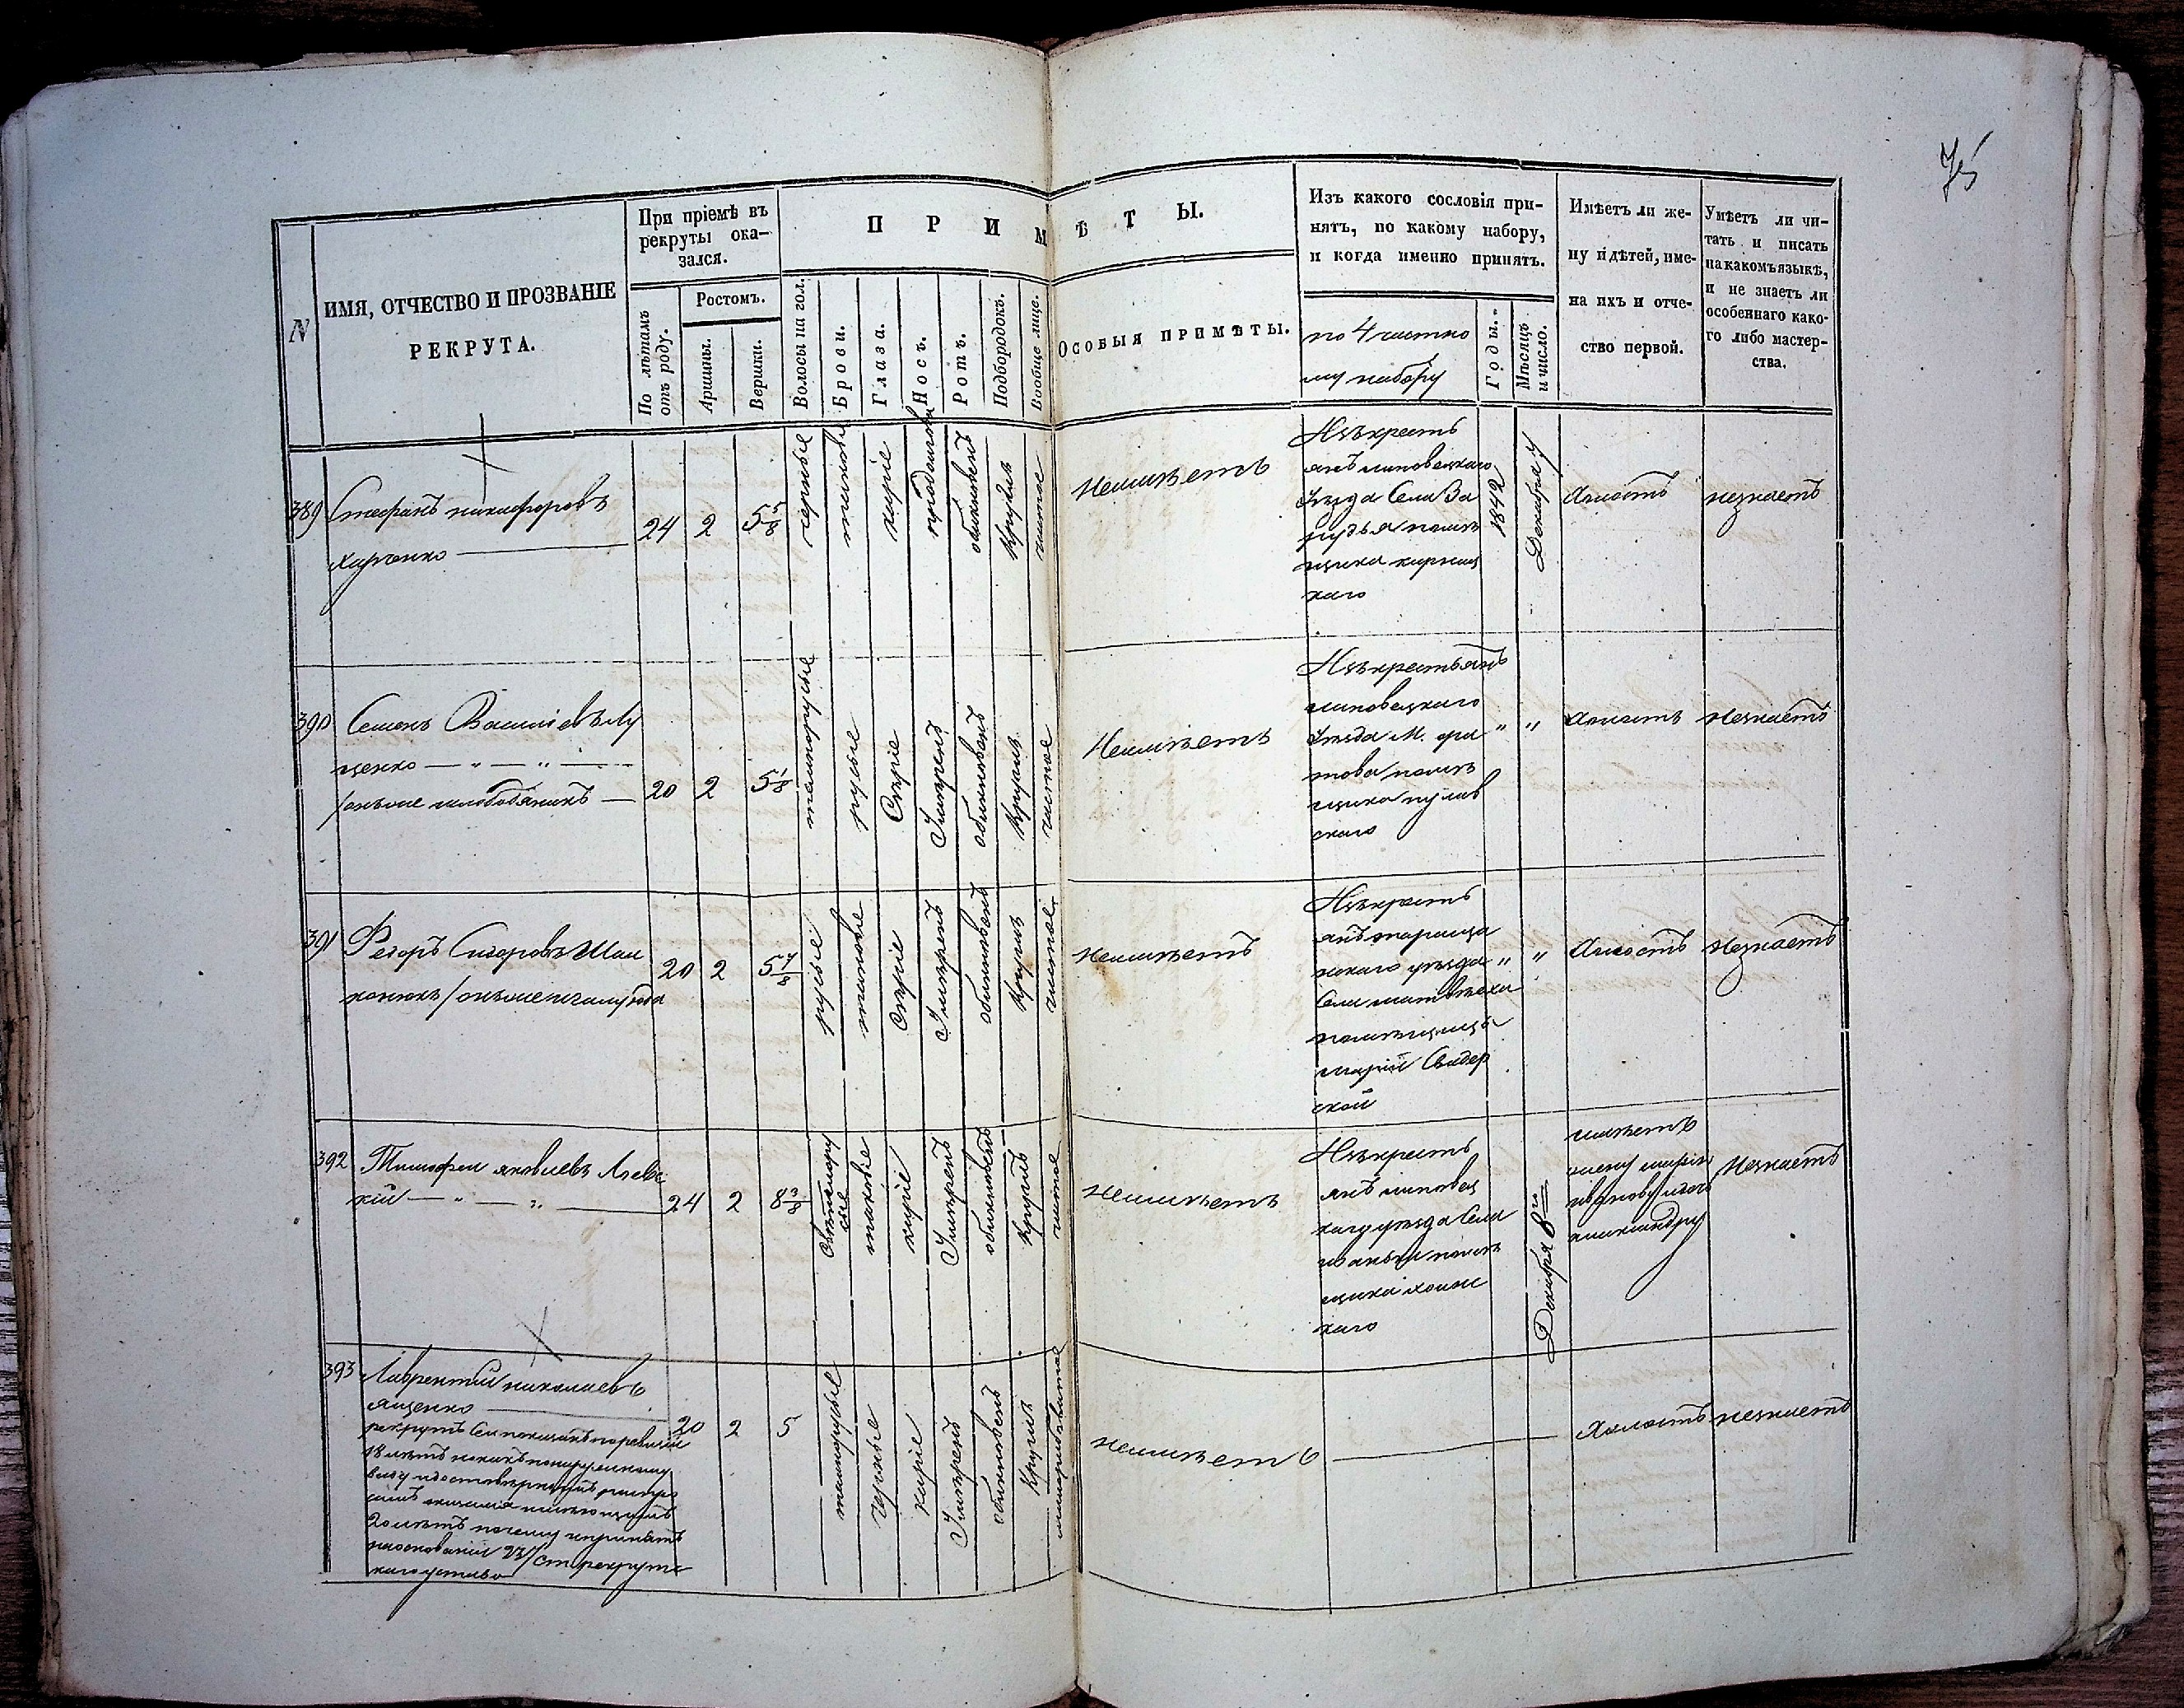 75
N
ИМЯ, ОТЧЕСТВО И ПРОЗВАНІЕ
РЕКРУТА.
При пріемѣ въ
рекруты ока-
зался.
По лѣтамъ
отъ роду.
Ростомъ.
Аршины.
Вершки.
ПРИМѢТЫ.
Волосы на гол.
Брови.
Глаза.
Носъ.
Ротъ.
Подбородокъ.
Вообще лице.
ОСОБЫЯ ПРИМѢТЫ.
Изъ какого сословія при-
нятъ, по какому набору,
и когда именно принятъ.
по 4 частно
му набору
Годы.
Мѣсяцъ
и число.
Имѣетъ ли же-
ну и дѣтей, име-
на ихъ и отче-
ство первой.
Умѣетъ ли чи-
тать и писать
на какомъ языкѣ,
и не знаетъ ли
особеннаго како-
го либо мастер-
ства.
389
Стефанъ никифоровъ
Харченко
24 2 5 5/8
черные
таковые
каріе
обыкновенъ
Круглъ
чистое
Неимѣетъ
Изъ крестъ
янъ липовецкаго
Уѣзда Села За
рудья помѣ
щика
1842
Декабря 4
Холостъ
незнаетъ
390
Семенъ Васильевъ Лу
ценко — " — " —
20 2 5 1/8
темнорусые
русые
Сѣріе
Умѣренъ
обыкновенъ
Круглъ
чистое
Неимѣетъ
Изъ крестьянъ
липовецкаго
Уѣзда М.
помѣ
щика
скаго
" "
Холостъ
Незнаетъ
391
Федоръ Сидоровъ
20 2 5 4/8
русые
таковые
Сѣріе
Умѣренъ
обыкновенъ
Круглъ
чистое
Неимѣетъ
Изъ крестъ
янъ тараща
нскаго уѣзда
Села
помѣщицы
маріи Свидер
ской
" "
Холостъ
Незнаетъ
392
Тимофей яковлевъ
кій — " — " —
24 2 8 3/8
Свѣтлору
сые
таковые
каріе
Умѣренъ
обыкновенъ
Круглъ
чистое
Неимѣетъ
Изъ крестъ
янъ липовец
каго уѣзда Села
помѣ
щика
каго
Декабря 8го
имѣетъ
жену марію
александру
Незнаетъ
393
Лаврентій николаевъ
ященко
рекрутъ Сей показанъ по ревизіи
18 лѣтъ
20 лѣтъ почему и принятъ
на основаніи ст рекрутс
каго устава
20 2 5
темнорусые
черные
каріе
Умѣренъ
обыкновенъ
Круглъ
Неимѣетъ
Холостъ
незнаетъ